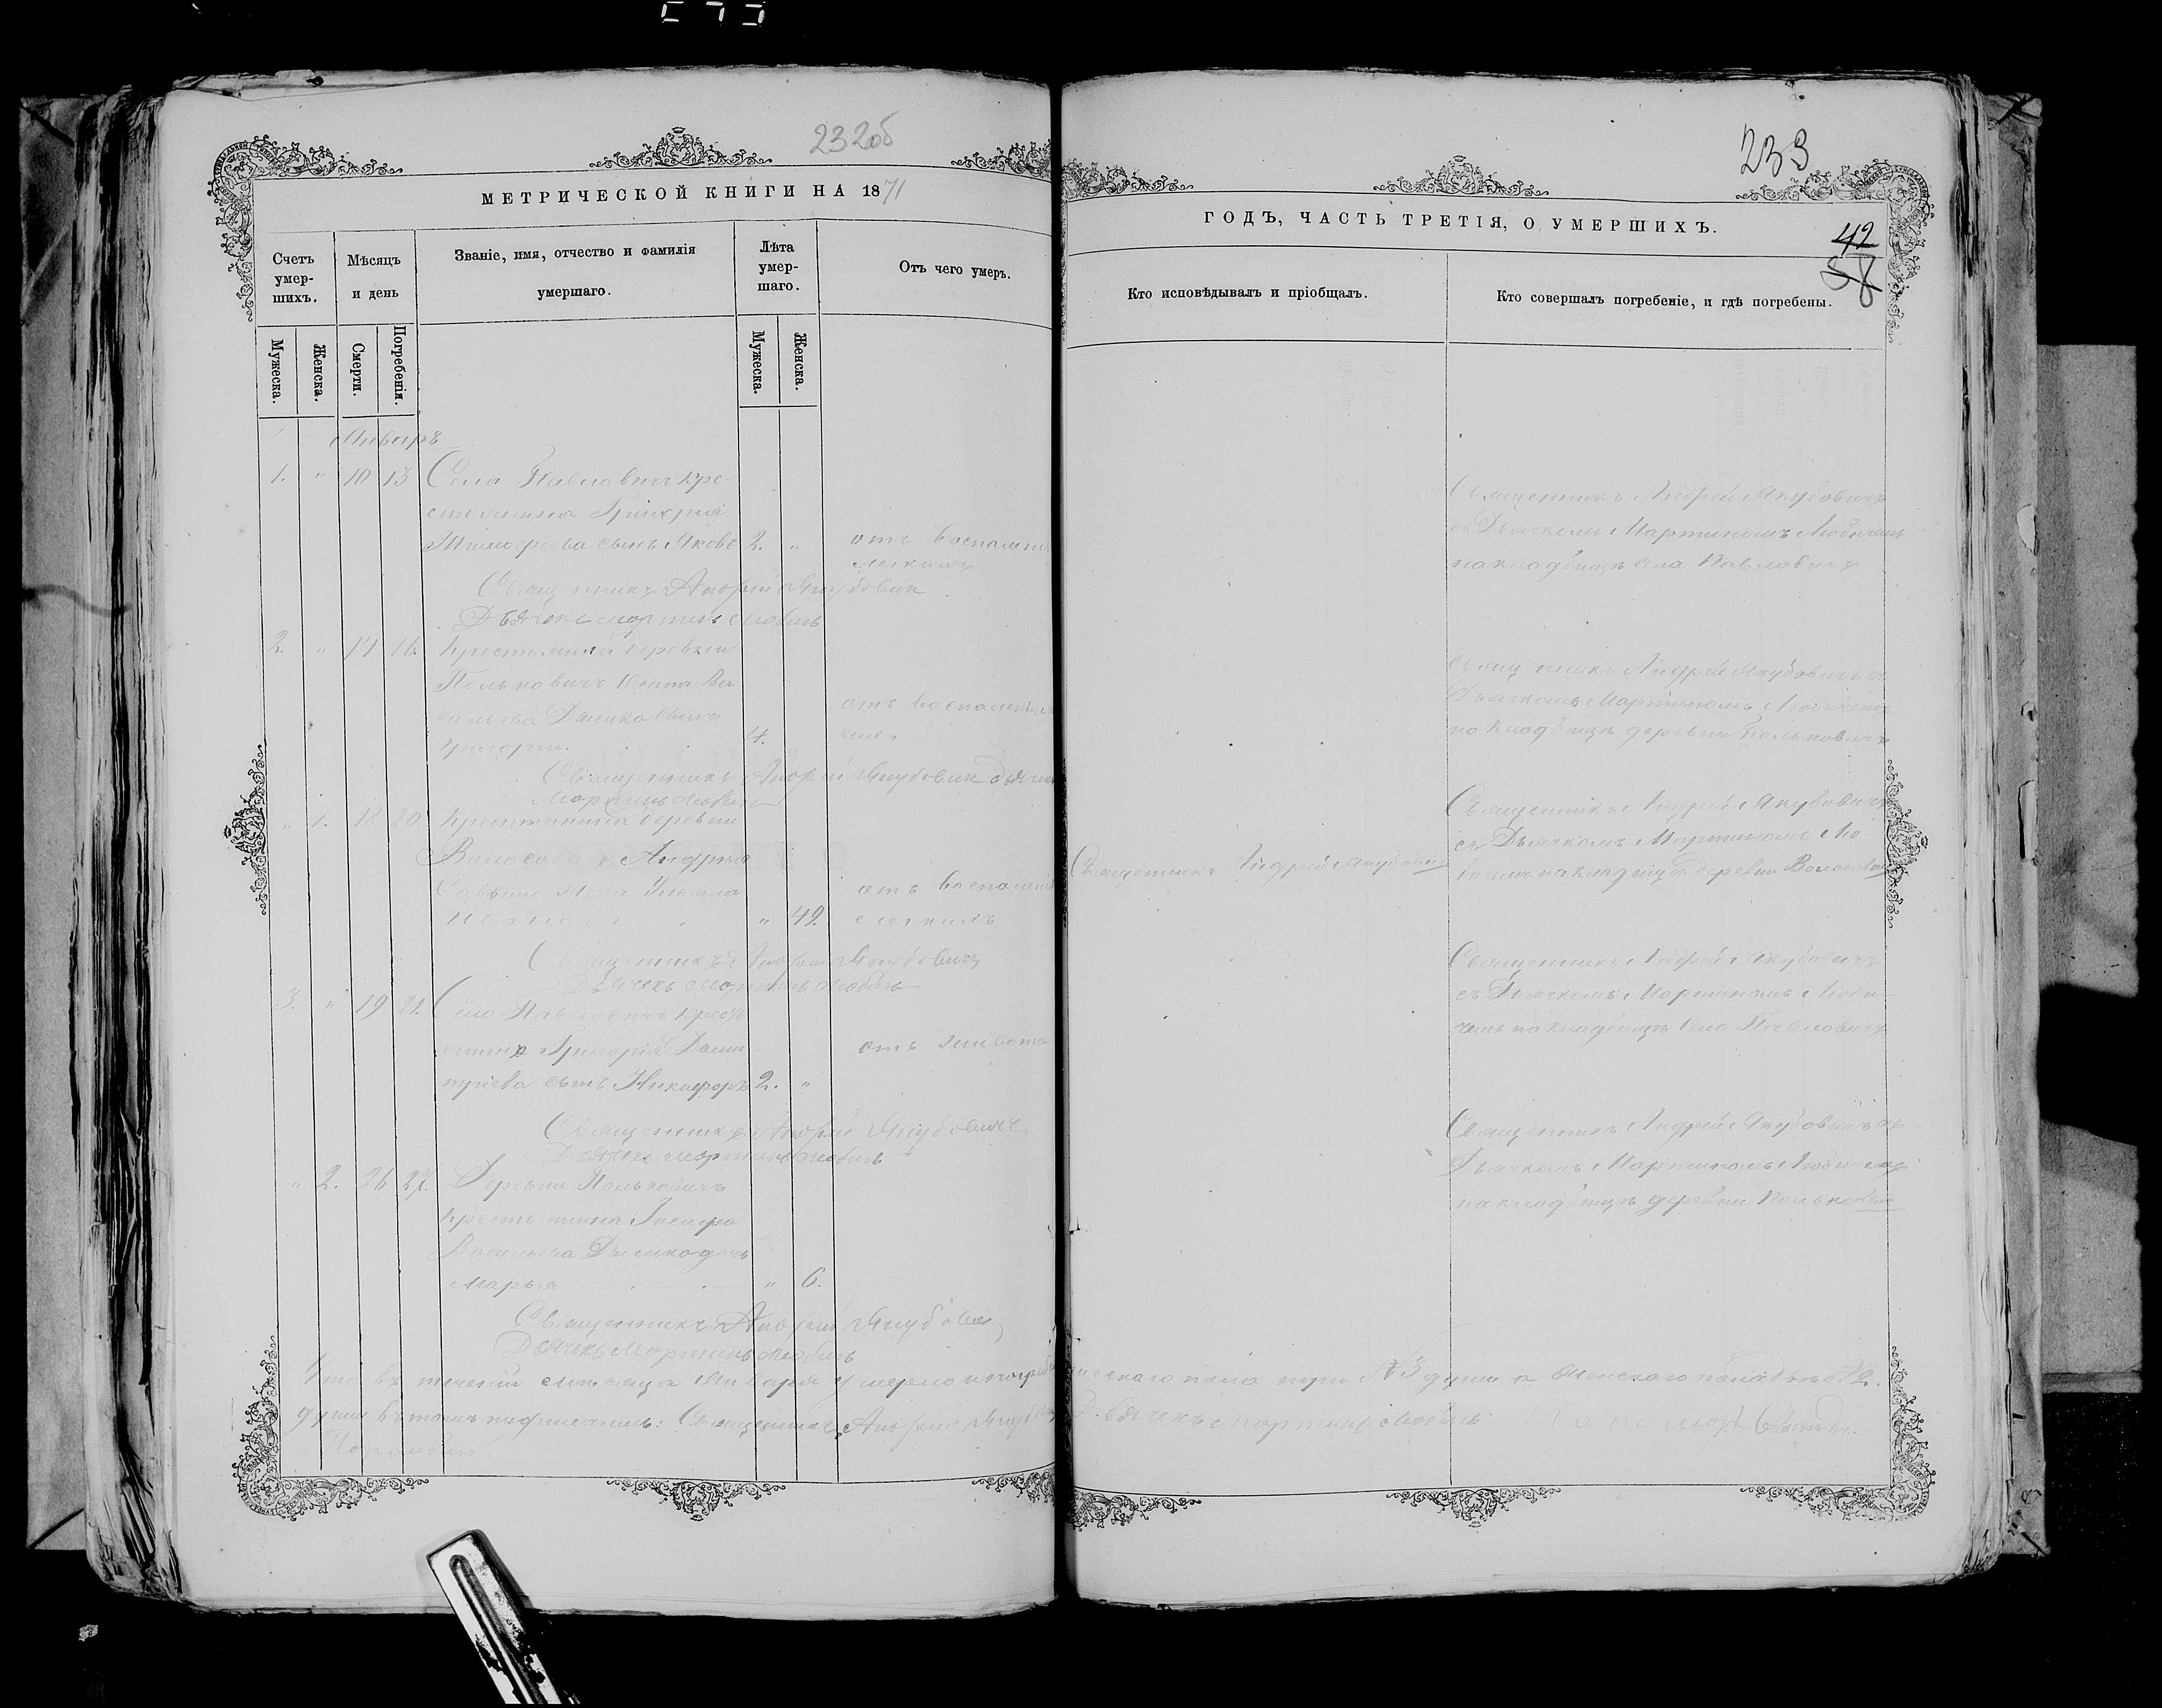 232об
МЕТРИЧЕСКОЙ КНИГИ НА 1871
Счетъ умер-шихъ.
Мѣсяцъ и день
Званіе, имя, отчество и фамилія умершаго.
Лѣта умер-шаго.
Отъ чего умеръ.
Мужеска.
Женска.
Смерти.
Погребенія.
Мужеска.
Женска.
Январь
1. " 10 13 Села Павловичъ кре-
стьянина Григорія
Тимофеева сынъ Яковъ 2. " отъ воспаленія
легкихъ
Священникъ Андрей Якубович
Дьячекъ Мартинъ Любичъ
2. " 14 16. Крестьянина деревни
Польковичъ Осипа Ва
сильева сынъ
Григорій 4. отъ воспаленія
Священникъ Андрей Якубович дьячекъ
Мартинъ Любичъ
" 1. 18 20. Крестьянина деревни
Андрея
жена Ульяна
Иванова " 49. отъ воспаленія
легкихъ
Священникъ Андрей Якубович
Дьячекъ Мартинъ Любичъ
3. " 19 21. Села Павловичъ крест
янина Григорія Дми
тріева сынъ Никифоръ 2. " отъ живота
Священникъ Андрей Якубовичъ
Дьячекъ Мартинъ Любичъ
" 2. 26 27. Деревни Польковичъ
Крестьянина Іосифа
Васильева дочь
Марья " 6.
Священникъ Андрей Якубович
Дьячекъ Мартинъ Любичъ
Что въ теченіи месяца Января умерло и погребено
души въ томъ подписались: Священникъ Андрей Якубович
233
ГОДЪ, ЧАСТЬ ТРЕТІЯ, О УМЕРШИХЪ.
42
58
Кто исповѣдывалъ и пріобщалъ.
Кто совершалъ погребеніе, и гдѣ погребены.
Священникъ Андрей Якубовичъ
съ Дьячкомъ Мартиномъ Любичемъ
на кладбищѣ села Павловичъ
Священникъ Андрей Якубовичъ съ
Дьячкомъ Мартиномъ Любичемъ
на кладбищѣ деревни Польковичъ
Священникъ Андрей Якубович
Священникъ Андрей Якубовичъ
съ Дьячкомъ Мартиномъ Лю-
бичемъ на кладбищѣ деревни
Священникъ Андрей Якубовичъ
съ Дьячкомъ Мартиномъ Люби-
чемъ на кладбищѣ села Павловичъ
Священникъ Андрей Якубовичъ съ
Дьячкомъ Мартиномъ Любичемъ
на кладбищѣ деревни Полькович
мужескаго пола три №3 души а женскаго пола двѣ №2.
Дьячекъ Мартинъ Любичъ